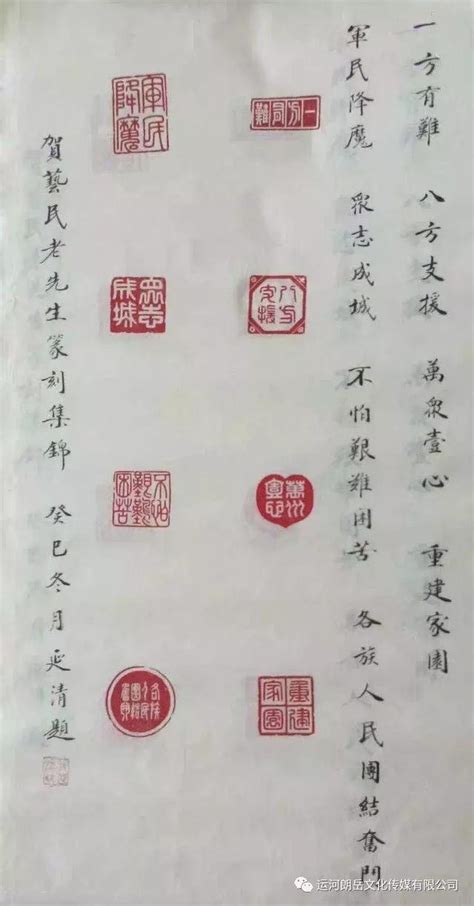 一方有難 八方支援 萬眾壹心 重建家園
軍民降魔 眾志成城 不怕艱難困苦 各族人民團結奮鬥
一方有難
八方支援
萬眾壹心
重建家園
軍民降魔
眾志成城
不怕艱難困苦
各族人民團結奮鬥
賀藝民老先生篆刻集錦 癸巳冬月延清題
运河朗岳文化传媒有限公司